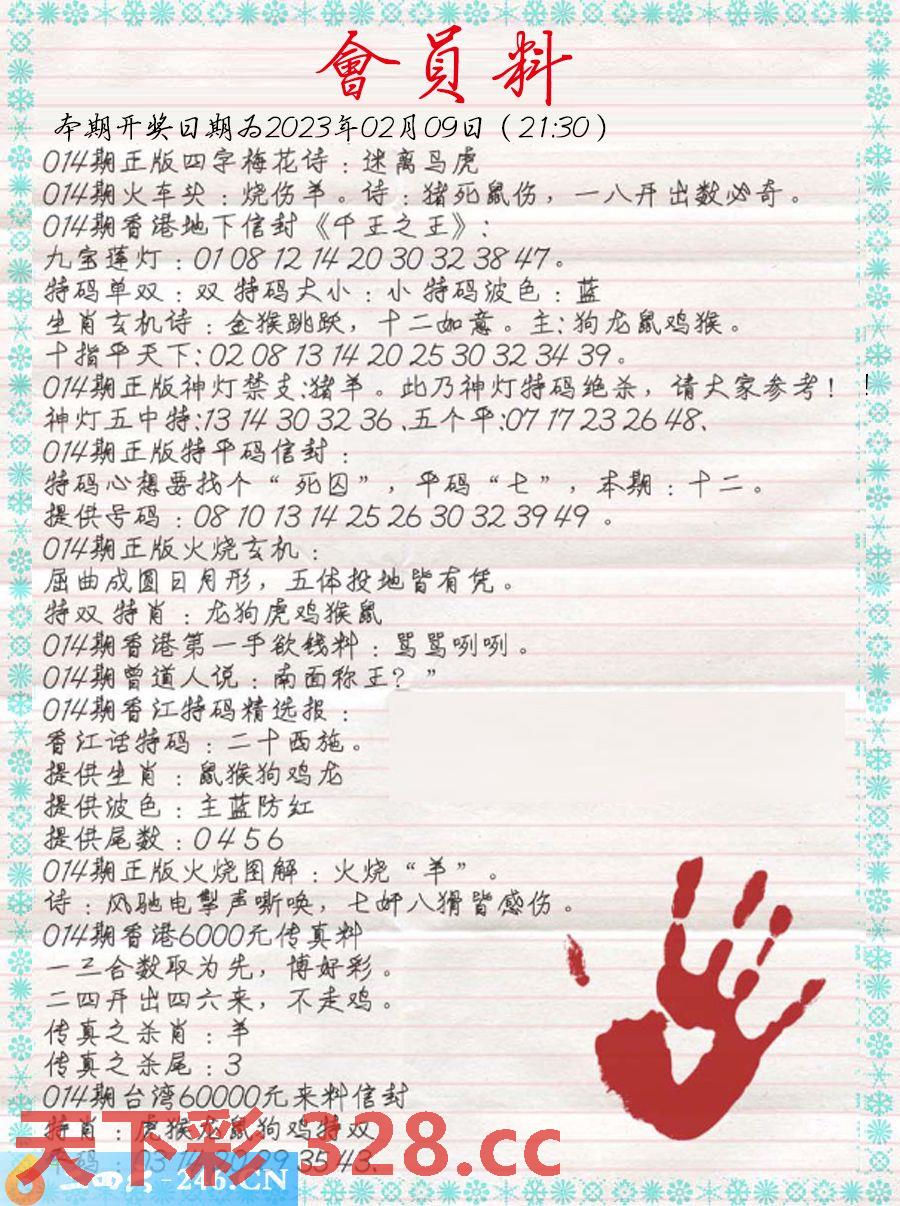 會員料
本期开奖日期为2023年02月09日（21:30）
014期正版四字梅花诗：迷离鸟虎
014期火车头：烧伤羊。诗：猪死鼠伤，一八开出数必奇。
014期香港地下信封《千王之王》：
九宝莲灯：01 08 12 14 20 30 32 38 47。
特码单双：双 特码大小：小 特码波色：蓝
生肖玄机诗：金猴跳跃，十二如意。主：狗龙鼠鸡猴。
十指平天下：02 08 13 14 20 25 30 32 34 39。
014期正版神灯禁支:猪羊。此乃神灯特码绝杀，请大家参考！！
神灯五中特:13 14 30 32 36 、五个平:07 17 23 26 48、
014期正版特平码信封：
特码心想要找个“死囚”，平码“七”，本期：十二。
提供号码：08 10 13 14 25 26 30 32 39 49 。
014期正版火烧玄机：
屈曲成圆日月形，五体投地皆有凭。
特双 特肖：龙狗虎鸡猴鼠
014期香港第一手欲钱料：骂骂咧咧。
014期曾道人说：南面称王？”
014期香江特码精选报：
香江话特码：二十西施。
提供生肖：鼠猴狗鸡龙
提供波色：主蓝防红
提供尾数：0 4 5 6
014期正版火烧图解：火烧“羊”。
诗：风驰电掣声嘶唤，七奸八猾皆感伤。
014期香港6000元传真料
一三合数取为先，博好彩。
二四开出四六来，不走鸡。
传真之杀肖：羊
传真之杀尾：3
014期台湾60000元来料信封
特肖：虎猴龙鼠狗鸡特双
35 43、
天下彩 328.cc
二四六-246.CN